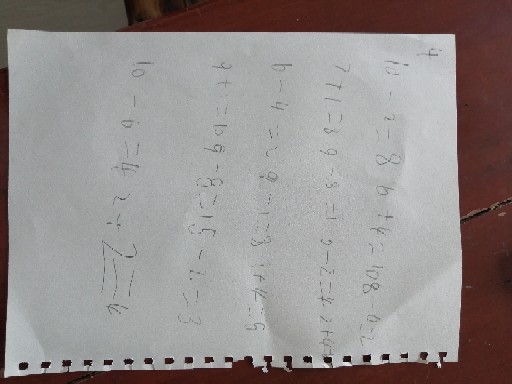 10-2=8 6+4=10 8
7+1=8 9-8=1 6-2=4 2+4
6-4=2 9-1=8 1+4=5
9+1=10 9-8=1 5-2=3
10-6=4 2+2=4